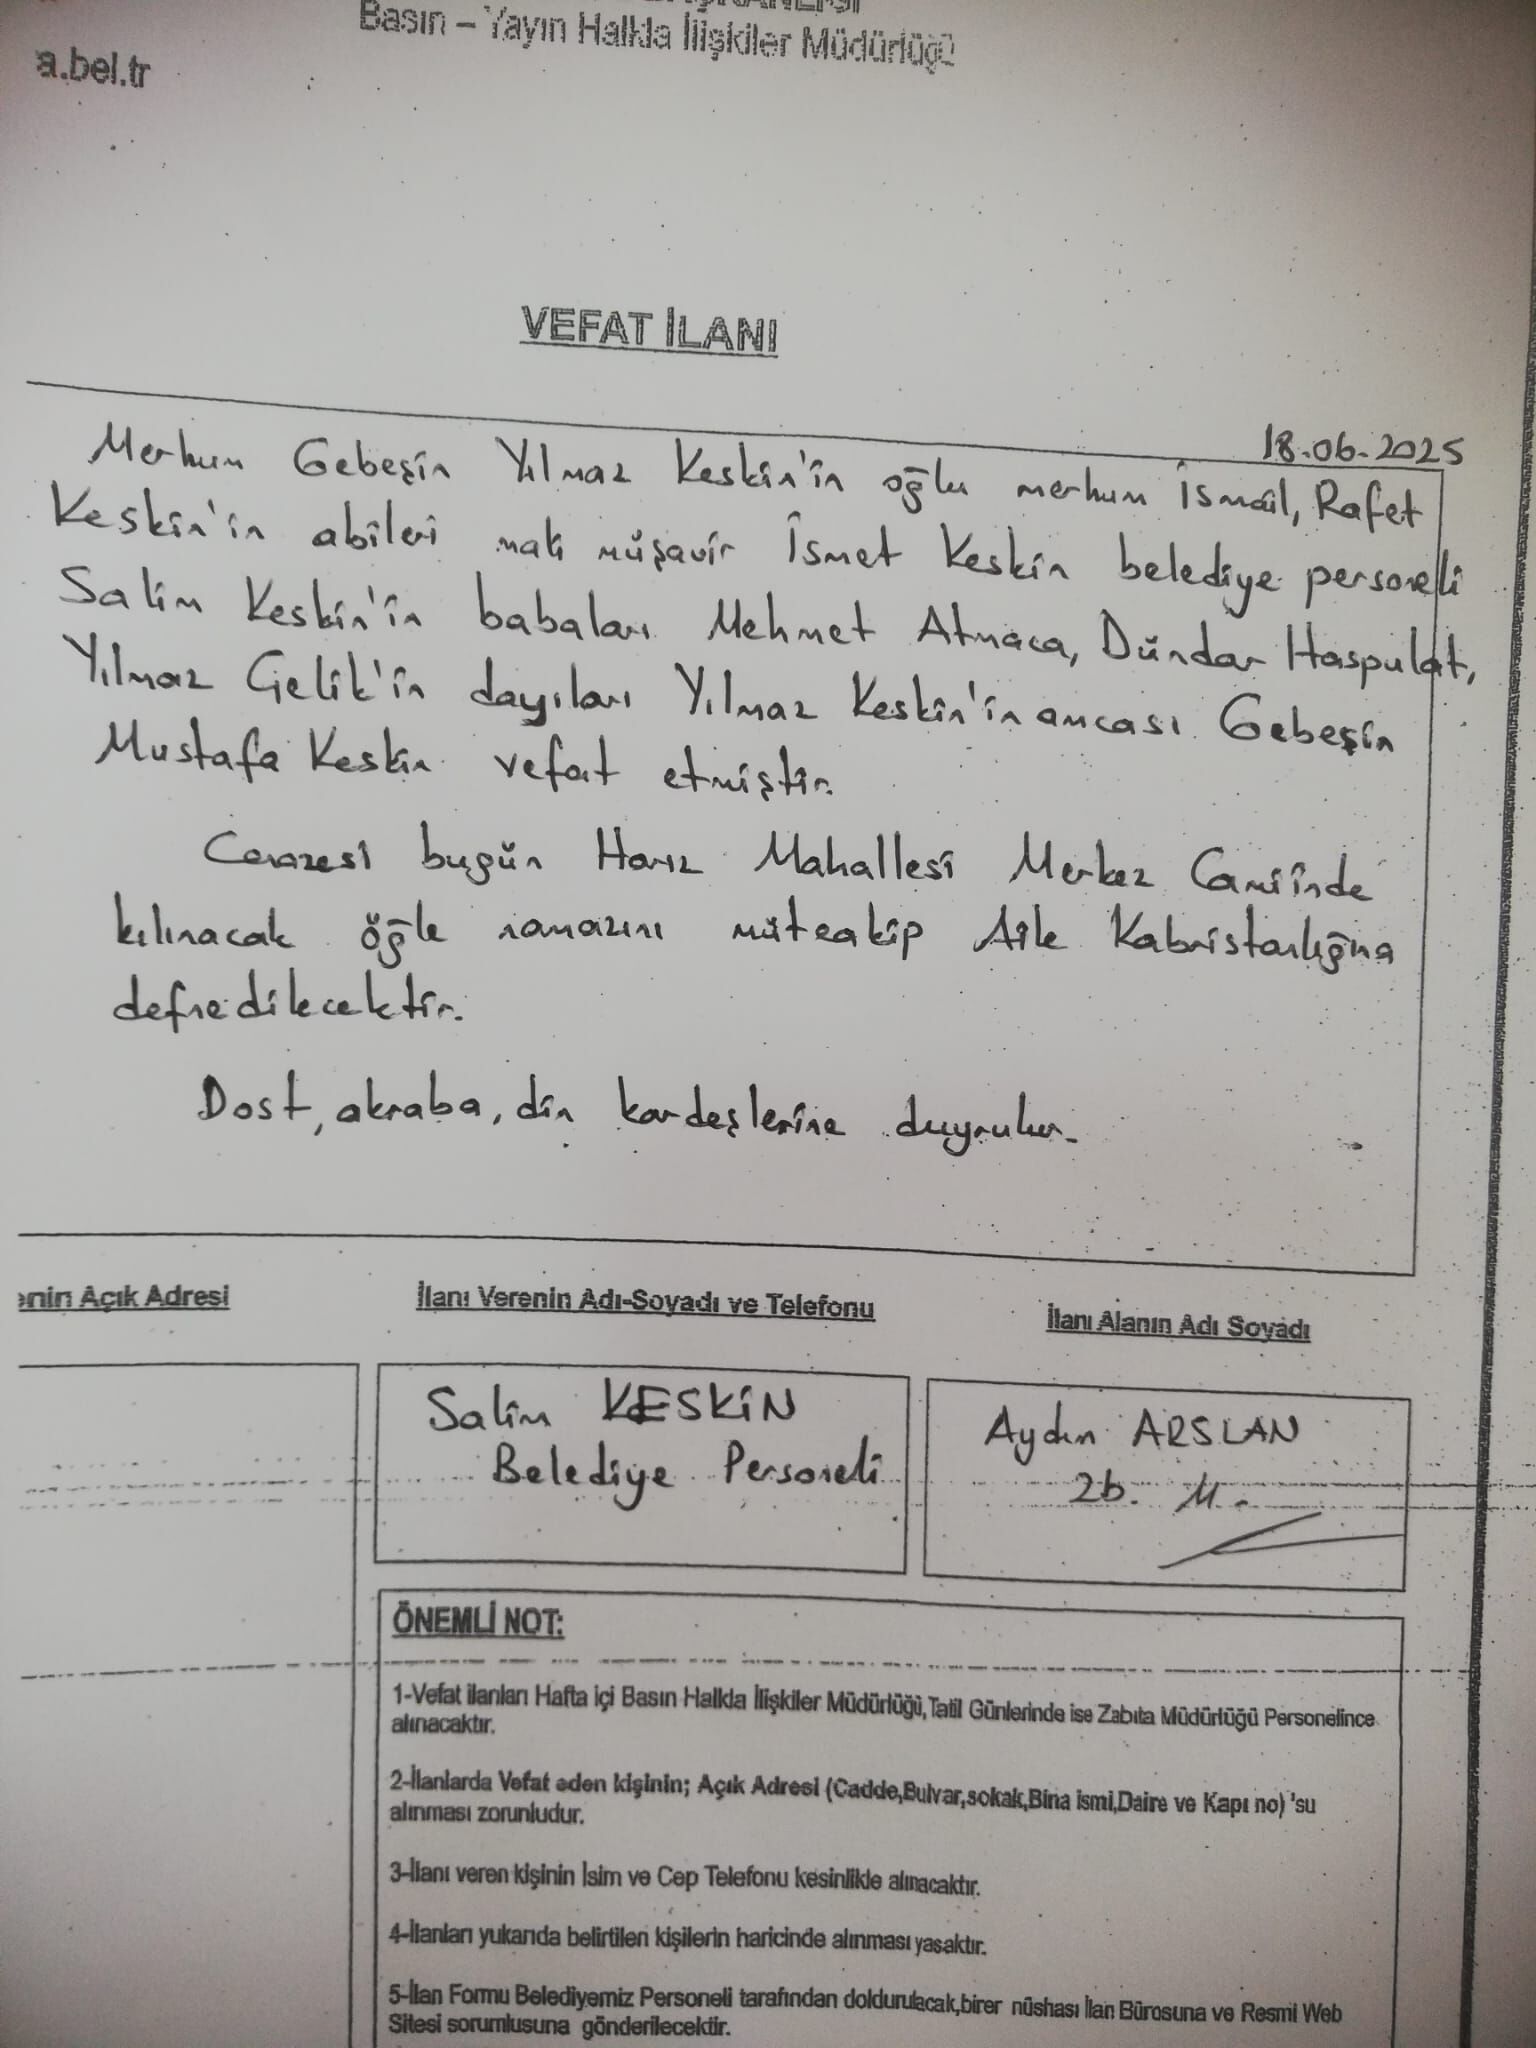 Basın – Yayın Halkla İlişkiler Müdürlüğü
a.bel.tr
VEFAT İLANI
18.06.2025
Merhum Gebeşin Yılmaz Keskin'in oğlu merhum İsmail, Rafet
Keskin'in abileri mali müşavir İsmet Keskin belediye personeli
Salim Keskin'in babaları Mehmet Atmaca, Dündar Haspulat,
Yılmaz Çelik'in dayıları Yılmaz Keskin'in amcası Gebeşin
Mustafa Keskin vefat etmiştir.
Cenazesi bugün Mahallesi Merkez Camiinde
kılınacak öğle namazını müteakip Aile Kabristanlığına
defnedilecektir.
Dost, akraba, din kardeşlerine duyrulur.
enin Açık Adresi
İlanı Verenin Adı-Soyadı ve Telefonu
İlanı Alanın Adı Soyadı
Salim KESKİN
Belediye Personeli
Aydın ARSLAN
ÖNEMLİ NOT:
1-Vefat ilanları Hafta içi Basın Halkla İlişkiler Müdürlüğü,Tatil Günlerinde ise Zabıta Müdürlüğü Personelince
alınacaktır.
2-İlanlarda Vefat eden kişinin; Açık Adresi (Cadde,Bulvar,sokak,Bina ismi,Daire ve Kapı no) 'su
alınması zorunludur.
3-İlanı veren kişinin İsim ve Cep Telefonu kesinlikle alınacaktır.
4-İlanları yukarıda belirtilen kişilerin haricinde alınması yasaktır.
5-İlan Formu Belediyemiz Personeli tarafından doldurulacak,birer nüshası İlan Bürosuna ve Resmi Web
Sitesi sorumlusuna gönderilecektir.